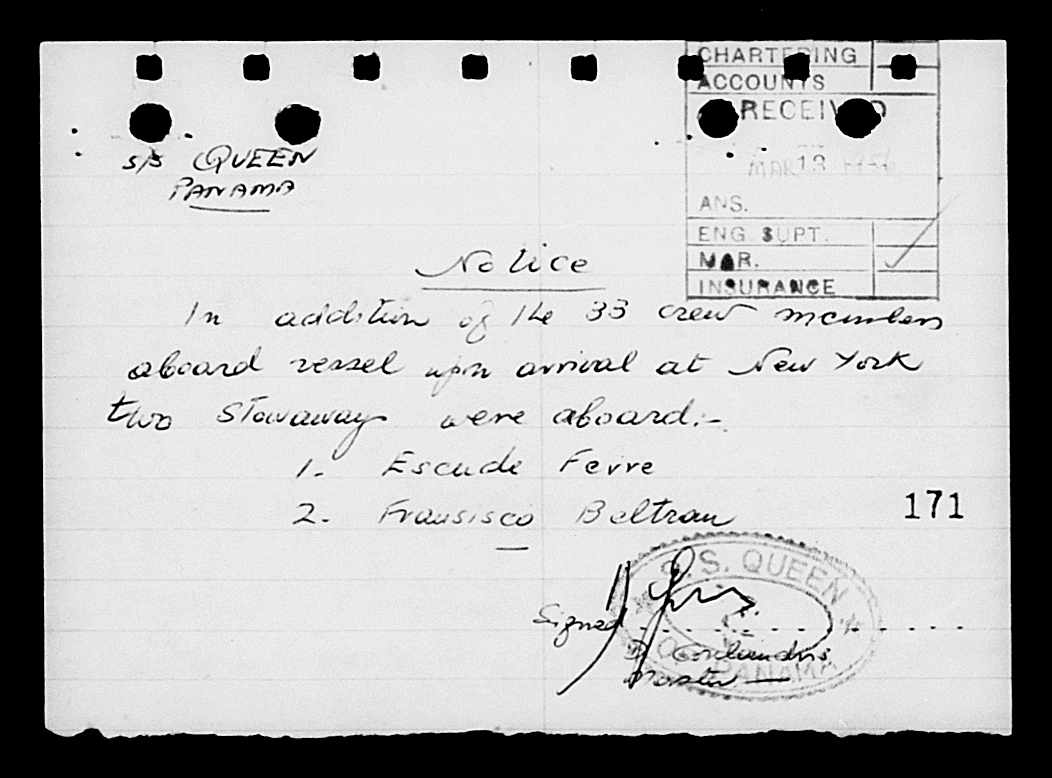 CHARTERING
ACCOUNTS
RECEIVED
MAR 13
ANS.
ENG. SUPT.
MAR.
INSURANCE
S/S QUEEN
PANAMA
Notice
In addition of the 33 crew members
aboard vessel upon arrival at New York
two Stowaways were aboard:-
1. Escude Fevre
2. Fransisco Beltran
171
S.S. QUEEN
Signed
PANAMA
Master